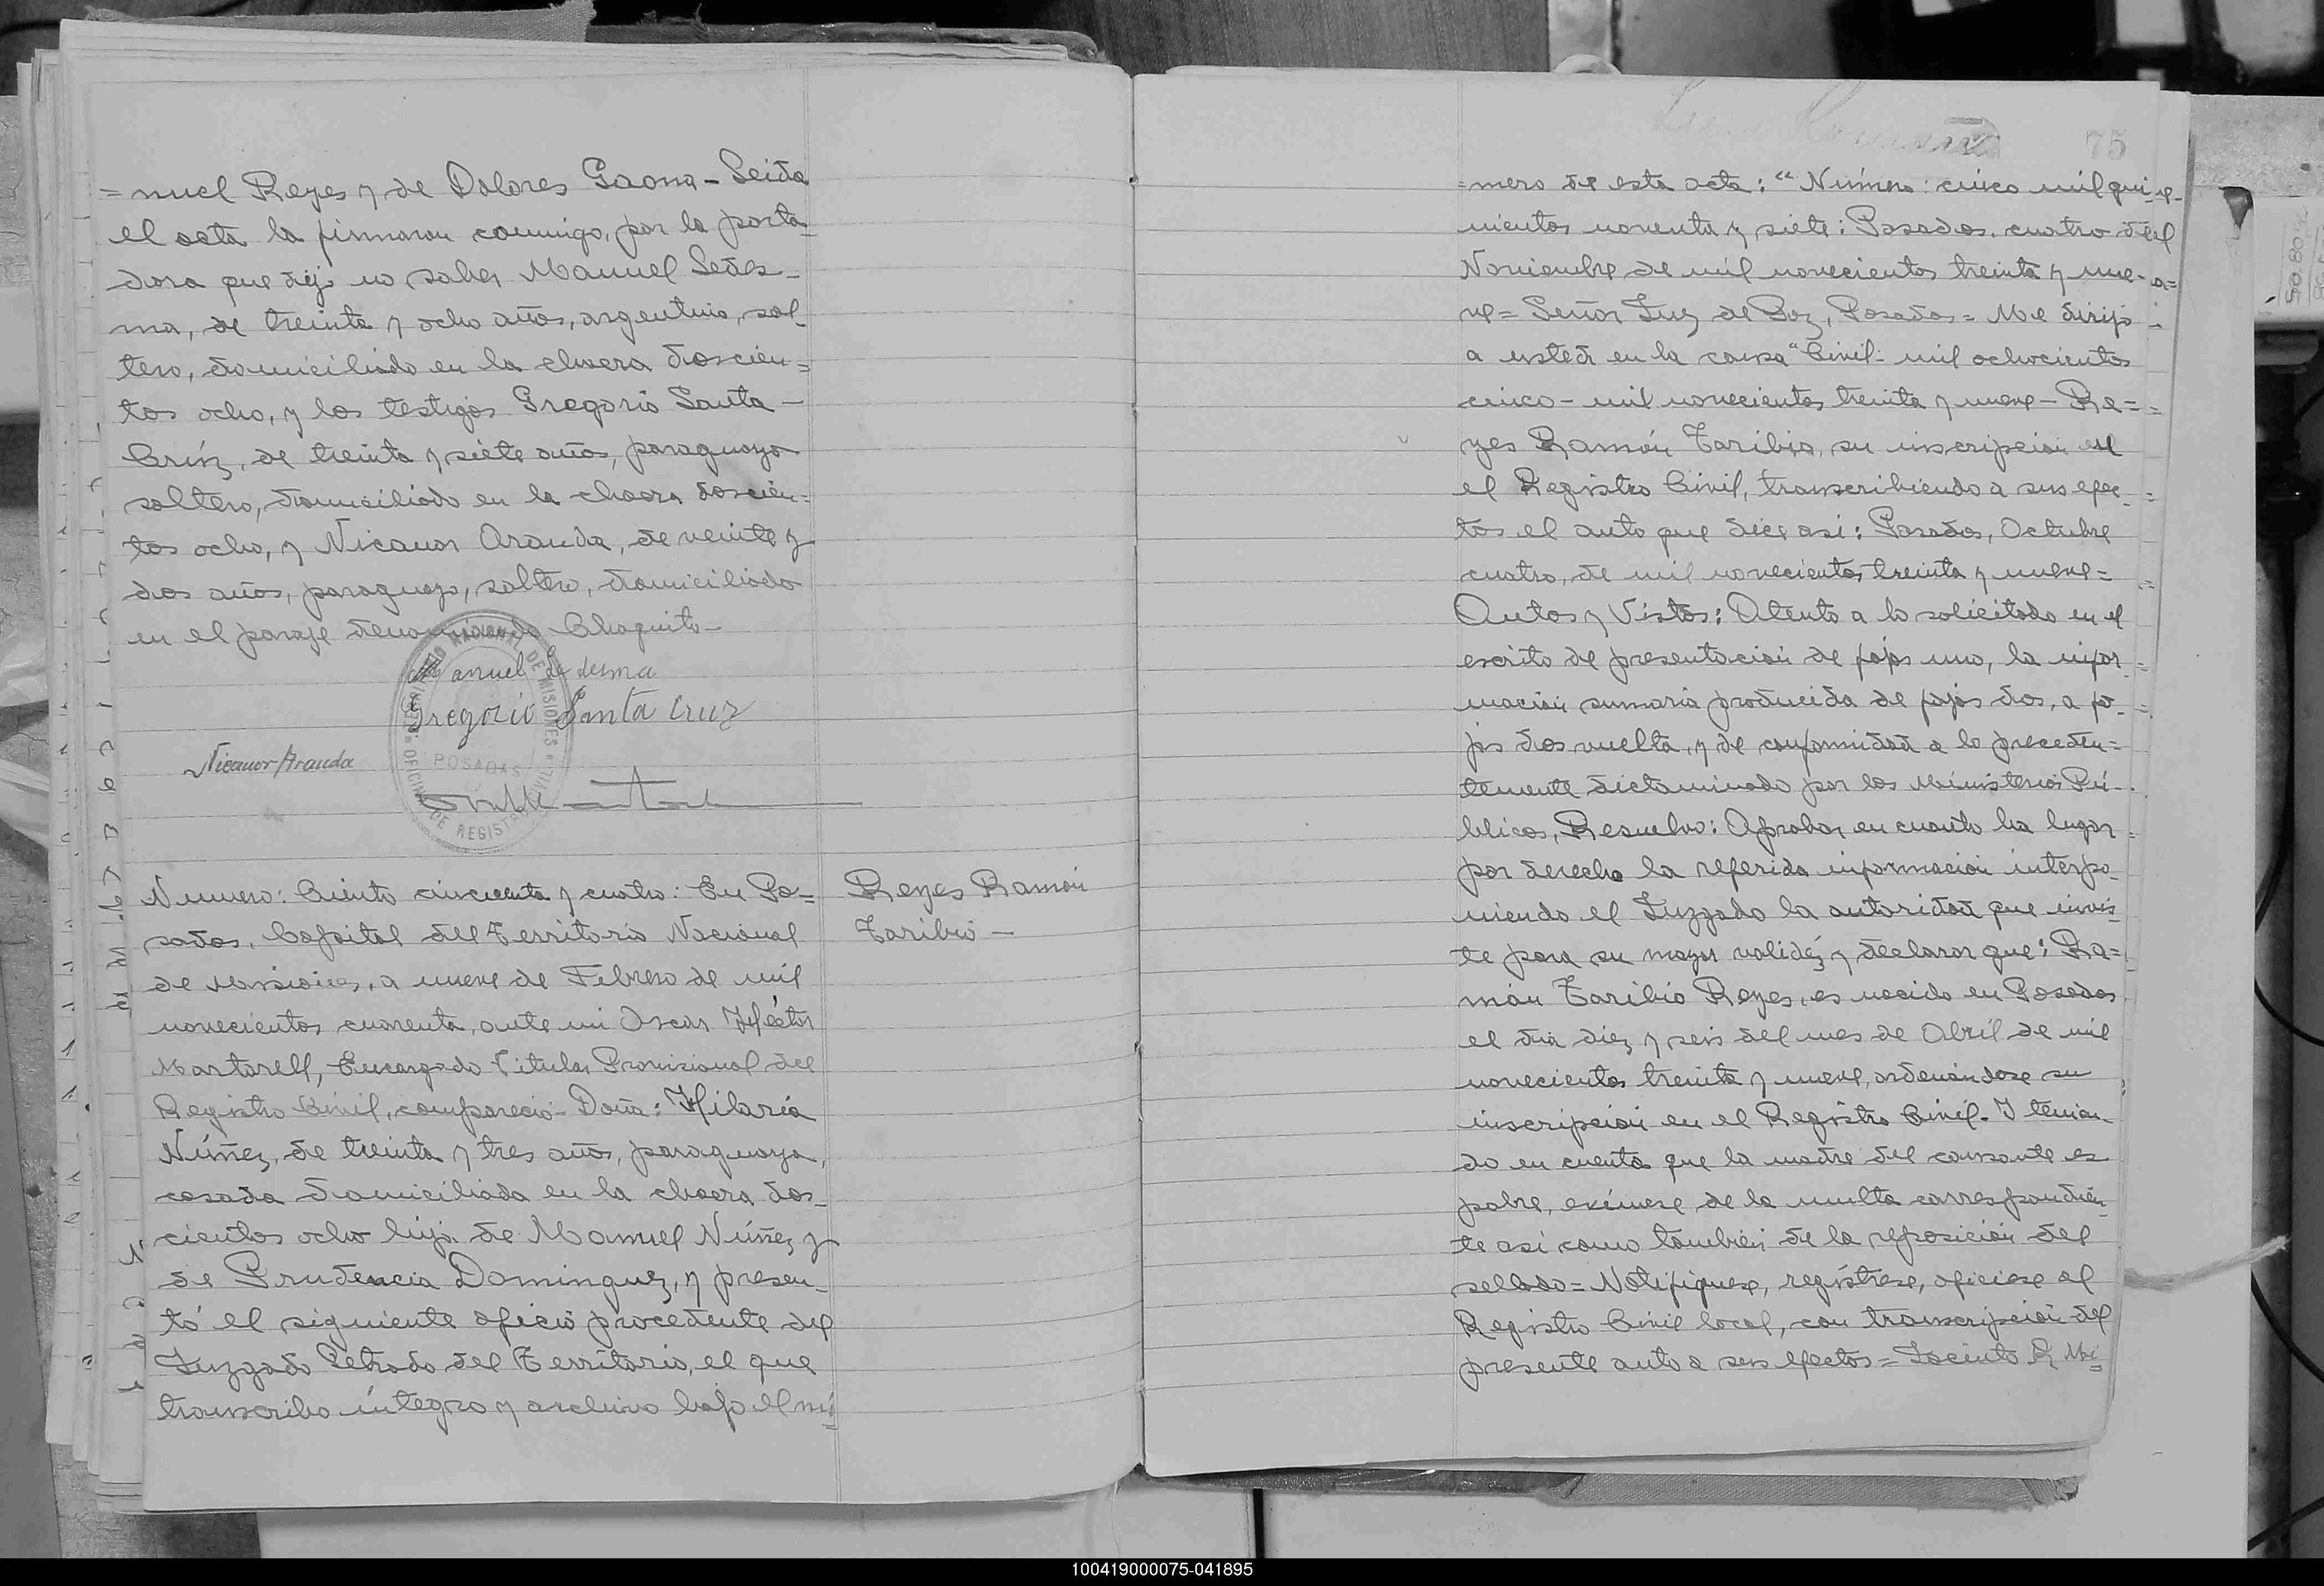 = nuel Reyes y de Dolores Gaona - Leida
el acta la firmaron conmigo, por la porta-
dora que dijo no saber Manuel Ledes-
ma, de treinta y ocho años, argentino, sol-
tero, domiciliado en la chacra doscien=
tos ocho, y los testigos Gregorio Santa -
Crúz, de treinta y siete años, paraguayo
soltero, domiciliado en la chacra doscien=
tos ocho, y Nicanor Aranda, de veinte y
dos años, paraguayo, soltero, domiciliado
en el paraje denominado Chaquito -
Manuel Ledesma
Gregorio Santa Cruz
Nicanor Aranda
POSADAS
Numero: Ciento cincuenta y cuatro: En Po=
sadas, Capital del Territorio Nacional
de Misiones, a nueve de Febrero de mil
novecientos cuarenta, ante mi Oscar Héctor
Martorell, Encargado Titular Provisional del
Registro Civil, compareció - Doña: Hilaria
Núñez, de treinta y tres años, paraguaya,
casada domiciliada en la chacra dos-
cientos ocho hija de Manuel Núñez y
de Prudencia Dominguez, y presen-
tó el siguiente oficio procedente del
Juzgado Letrado del Territorio, el que
transcribo íntegro y archivo bajo el nú=
Reyes Ramón
Toribio -
75
=mero de esta acta: "Número: cinco mil qui-
nientos noventa y siete: Posadas, cuatro de
Noviembre de mil novecientos treinta y nue-
ve = Señor Juez de Paz, Posadas = Me dirijo
a usted en la causa "Civil - mil ochocientos
cinco - mil novecientos treinta y nueve - Re=
yes Ramón Toribio, su inscripción en
el Registro Civil, transcribiendo a sus efec-
tos el auto que dice asi: Posadas, Octubre
cuatro, de mil novecientos treinta y nueve =
Autos y Vistos: Atento a lo solicitado en el
escrito de presentación de fojas uno, la infor-
mación sumaria producida de fojas dos, a fo-
jas dos vuelta, y de conformidad a lo preceden=
temente dictaminado por los Ministerios Pú-
blicos, Resuelvo: Aprobar en cuanto ha lugar
por derecho la referida información interpo-
niendo el Juzgado la autoridad que invis-
te para su mayor validéz y declarar que: Ra=
món Toribio Reyes, es nacido en Posadas
el dia diez y seis del mes de Abril de mil
novecientos treinta y nueve, ordenándose su
inscripción en el Registro Civil - Y tenien-
do en cuenta que la madre del causante es
pobre, exímese de la multa correspondien-
te asi como también de la reposición del
sellado = Notifiquese, regístrese, ofíciese al
Registro Civil local, con transcripción del
presente auto a sus efectos = Jacinto R. Mi=
100419000075-041895